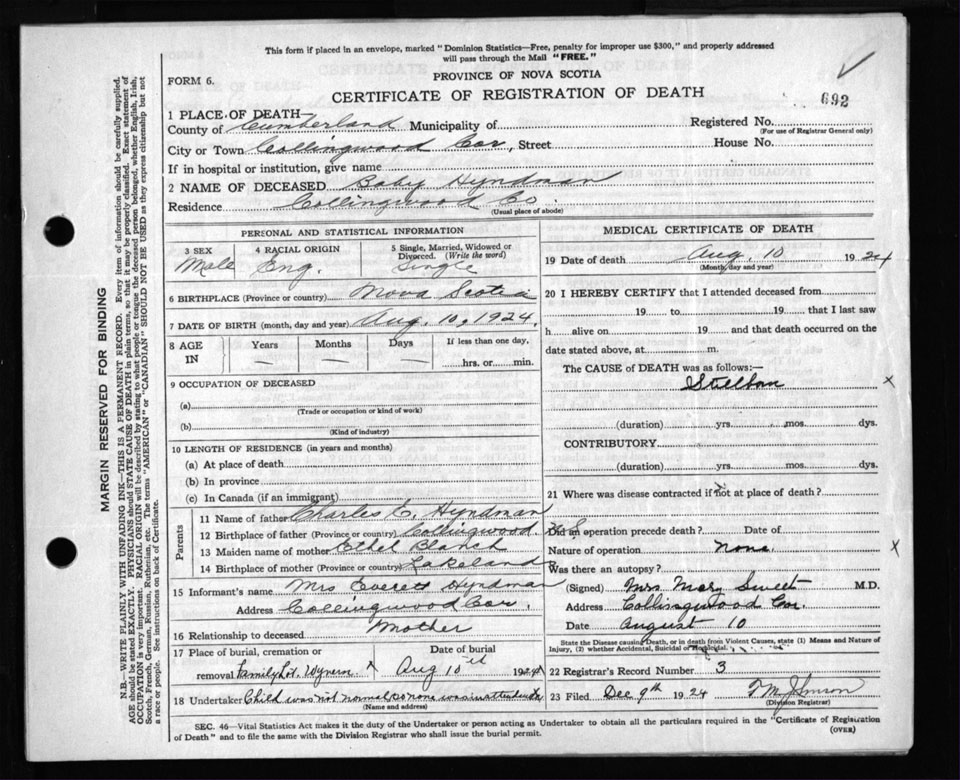 This form if placed in an envelope, marked "Dominion Statistics—Free, penalty for improper use $300," and properly addressed
will pass through the Mail "FREE."
PROVINCE OF NOVA SCOTIA
FORM 6.
CERTIFICATE OF REGISTRATION OF DEATH
692
1 PLACE OF DEATH—
County of Cumberland Municipality of Registered No.
(For use of Registrar General only)
City or Town Collingwood Cor, Street House No.
If in hospital or institution, give name
2 NAME OF DECEASED Baby Hyndman
Residence Collingwood Co.
(Usual place of abode)
PERSONAL AND STATISTICAL INFORMATION
3 SEX 4 RACIAL ORIGIN 5 Single, Married, Widowed or
Divorced. (Write the word)
Male Eng. Single
6 BIRTHPLACE (Province or country) Nova Scotia
7 DATE OF BIRTH (month, day and year) Aug. 10, 1924.
8 AGE IN Years Months Days If less than one day,
— — — hrs. or min.
9 OCCUPATION OF DECEASED
(a)
(Trade or occupation or kind of work)
(b)
(Kind of industry)
10 LENGTH OF RESIDENCE (in years and months)
(a) At place of death
(b) In province
(c) In Canada (if an immigrant)
Parents
11 Name of father Charles C. Hyndman
12 Birthplace of father (Province or country) Collingwood N.S.
13 Maiden name of mother Ethel
14 Birthplace of mother (Province or country) Lakelands
15 Informant's name Mrs Everett Hyndman
Address Collingwood Cor.
16 Relationship to deceased Mother
17 Place of burial, cremation or Date of burial
removal Family Lot. Aug 10 1924
18 Undertaker Child was not normal so none was in attendance
(Name and address)
MEDICAL CERTIFICATE OF DEATH
19 Date of death Aug. 10 1924
(Month, day and year)
20 I HEREBY CERTIFY that I attended deceased from
19 to 19 that I last saw
h alive on 19 and that death occurred on the
date stated above, at m.
The CAUSE of DEATH was as follows:—
Stillborn x
(duration) yrs. mos. dys.
CONTRIBUTORY
(duration) yrs. mos. dys.
21 Where was disease contracted if not at place of death?
Did an operation precede death? Date of
Nature of operation None. x
Was there an autopsy?
(Signed) Mrs. Mary Sweet M.D.
Address Collingwood Cor.
Date August 10
State the Disease causing Death, or in death from Violent Causes, state (1) Means and Nature of
Injury, (2) whether Accidental, Suicidal or Homicidal.
22 Registrar's Record Number 3
23 Filed Dec 9th 1924 T.M. Johnson
(Division Registrar)
SEC. 46—Vital Statistics Act makes it the duty of the Undertaker or person acting as Undertaker to obtain all the particulars required in the "Certificate of Registration
of Death" and to file the same with the Division Registrar who shall issue the burial permit. (OVER)
MARGIN RESERVED FOR BINDING
N.B.—WRITE PLAINLY WITH UNFADING INK—THIS IS A PERMANENT RECORD. Every item of information should be carefully supplied.
AGE should be stated EXACTLY. PHYSICIANS should STATE CAUSE OF DEATH in plain terms, so that it may be properly classified. Exact statement of
OCCUPATION is very important. RACIAL ORIGIN will be described by stating to what people or tongue the deceased person belonged, whether English, Irish,
Scotch, French, German, Russian, Ruthenian, etc. The terms "AMERICAN" or "CANADIAN" SHOULD NOT BE USED as they express citizenship but not
a race or people. See instructions on back of Certificate.